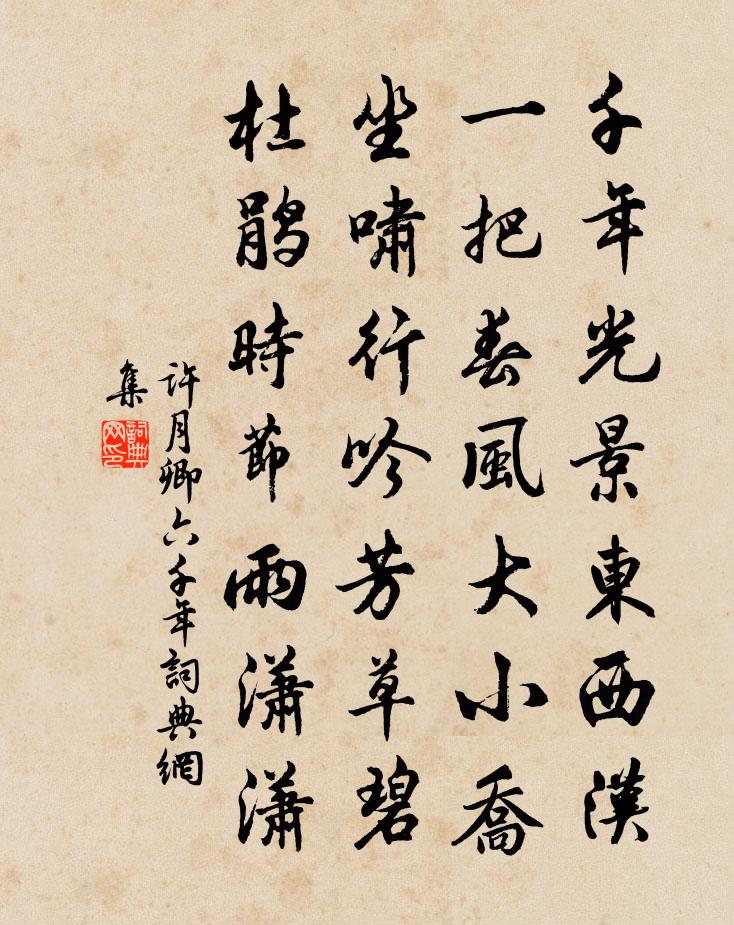 千年光景東西漢
一把春風大小喬
坐嘯行吟芳草碧
杜鵑時節雨瀟瀟
許月卿六千年詞典網
集
詞典
网印